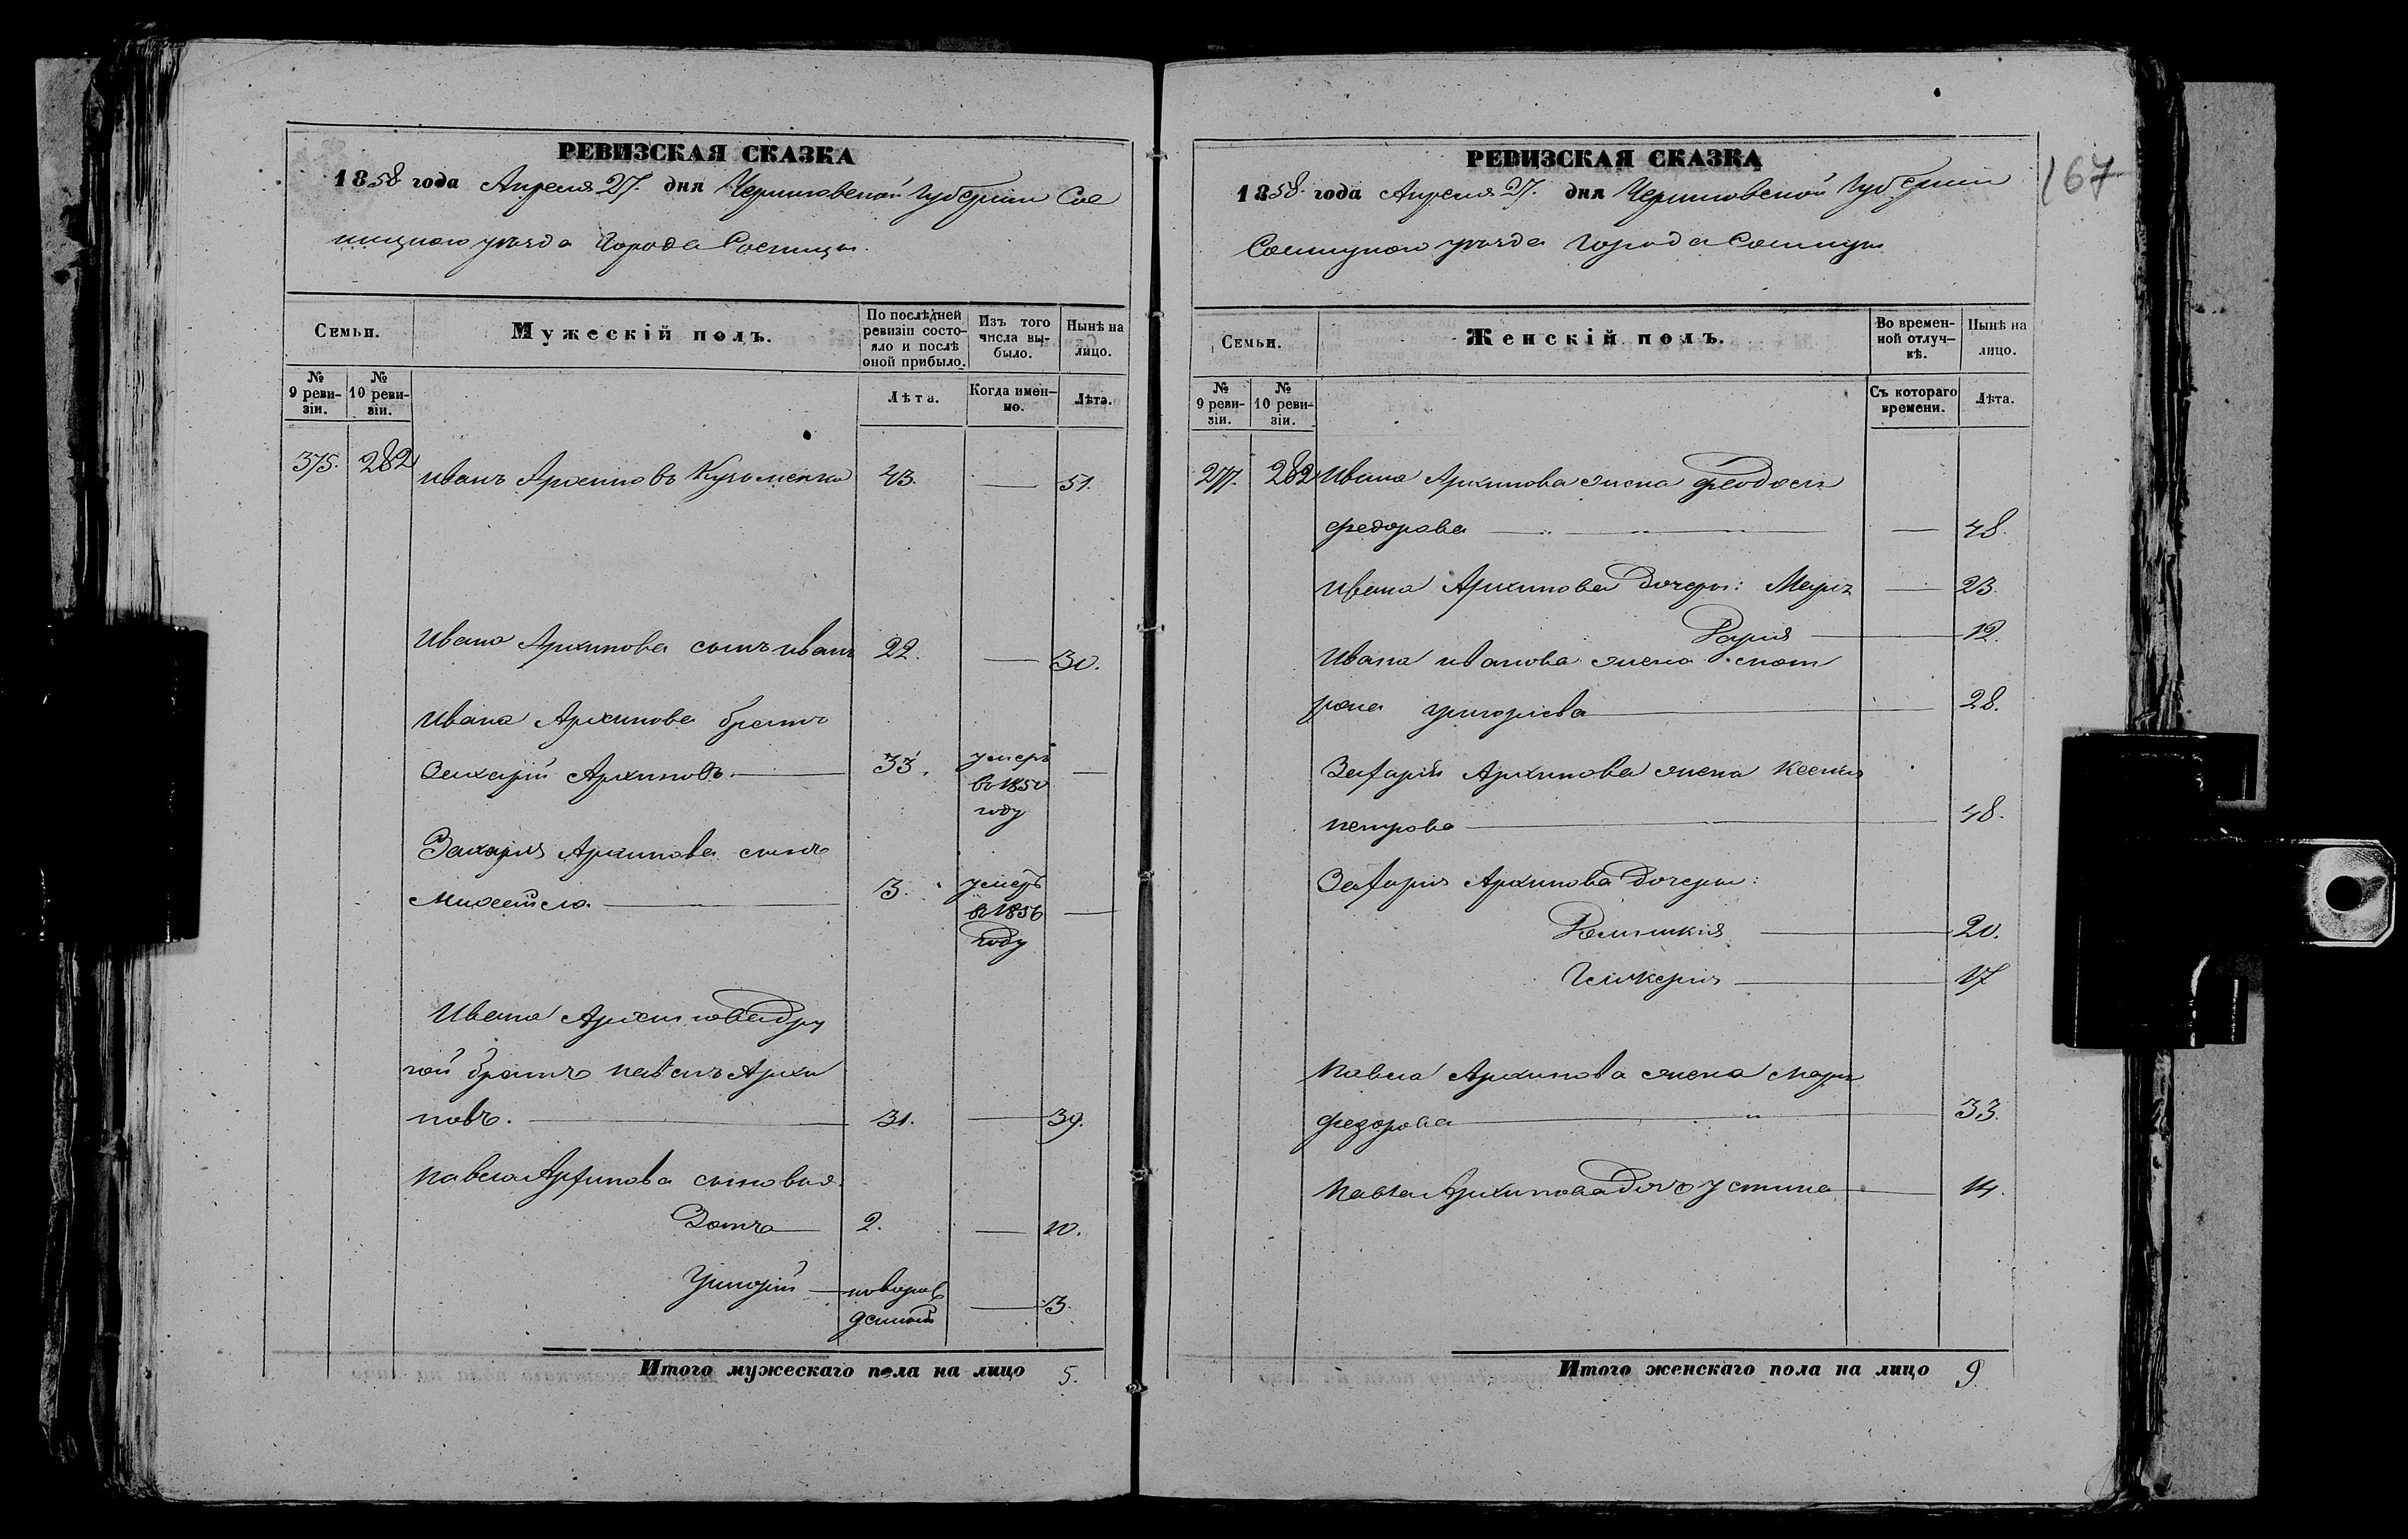 РЕВИЗСКАЯ СКАЗКА
1858 года Апреля 27. дня Черниговской Губернии Сос
ницкого уезда Города Сосницы.
Семьи.
Мужескій полъ.
По послѣдней ревизіи состояло и послѣ оной прибыло.
Изъ того числа выбыло.
Нынѣ на лицо.
№ 9 ревизіи.
№ 10 ревизіи.
Лѣта.
Когда именно.
Лѣта.
375. 282 Иванъ Архиповъ Кузьменко 43. — 51.
Ивана Архипова сынъ Иванъ 22. — 30.
Ивана Архипова братъ
Захарій Архиповъ. — 33. умеръ —
в 1850
году
Захарія Архипова сынъ
Михайло. — 3. умеръ
в 1856 —
году
Ивана Архипова дру
гой братъ Павелъ Архи
повъ. — 31. — 39.
Павла Архипова сыновья.
Зотъ — 2. — 10.
Григорій — новорож
денный — 3.
Итого мужескаго пола на лицо 5.
РЕВИЗСКАЯ СКАЗКА
167
1858. года Апреля 27. дня Черниговской Губернии
Сосницкого уезда Города Сосницы
Семьи.
Женскій полъ.
Во временной отлучкѣ.
Нынѣ на лицо.
№ 9 ревизіи.
№ 10 ревизіи.
Съ котораго времени.
Лѣта.
277. 282 Ивана Архипова жена Феодосія
Федорова — — 48.
Ивана Архипова дочери: Марія — 23.
Дарія — 12.
Ивана Иванова жена Мат
рона Григорієва — 28.
Захарія Архипова жена Ксенія
Петрова — 48.
Захарія Архипова дочери:
20.
Гликерия — 17
Павла Архипова жена Марія
Федорова — 33.
Павла Архипова дочь Устина — 14.
Итого женскаго пола на лицо 9